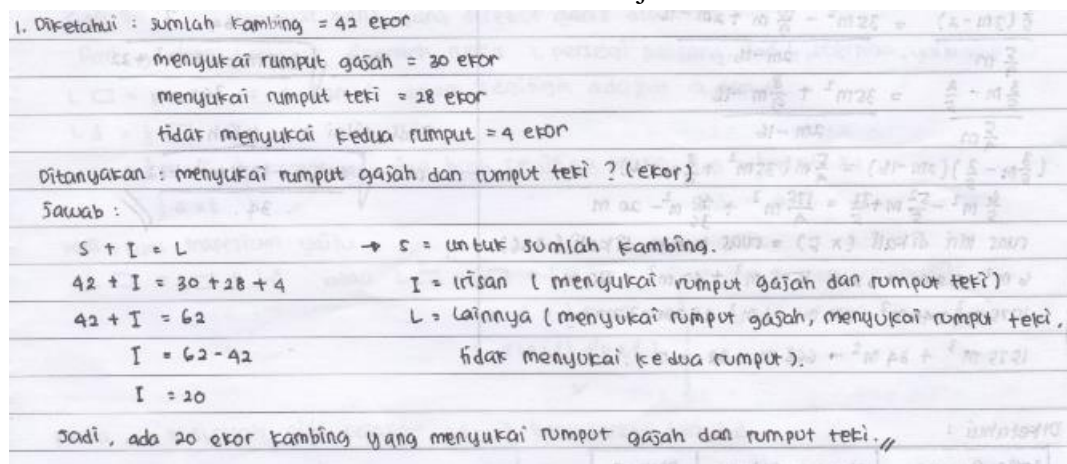 1. Diketahui : Jumlah kambing = 42 ekor
menyukai rumput gajah = 30 ekor
menyukai rumput teki = 28 ekor
tidak menyukai kedua rumput = 4 ekor
Ditanyakan : menyukai rumput gajah dan rumput teki ? (ekor)
Jawab :
S + I = L → S = untuk Jumlah kambing.
42 + I = 30 + 28 + 4 I = irisan ( menyukai rumput gajah dan rumput teki )
42 + I = 62 L = Lainnya ( menyukai rumput gajah, menyukai rumput teki,
I = 62 - 42 tidak menyukai kedua rumput ).
I = 20
Jadi, ada 20 ekor kambing yang menyukai rumput gajah dan rumput teki. //